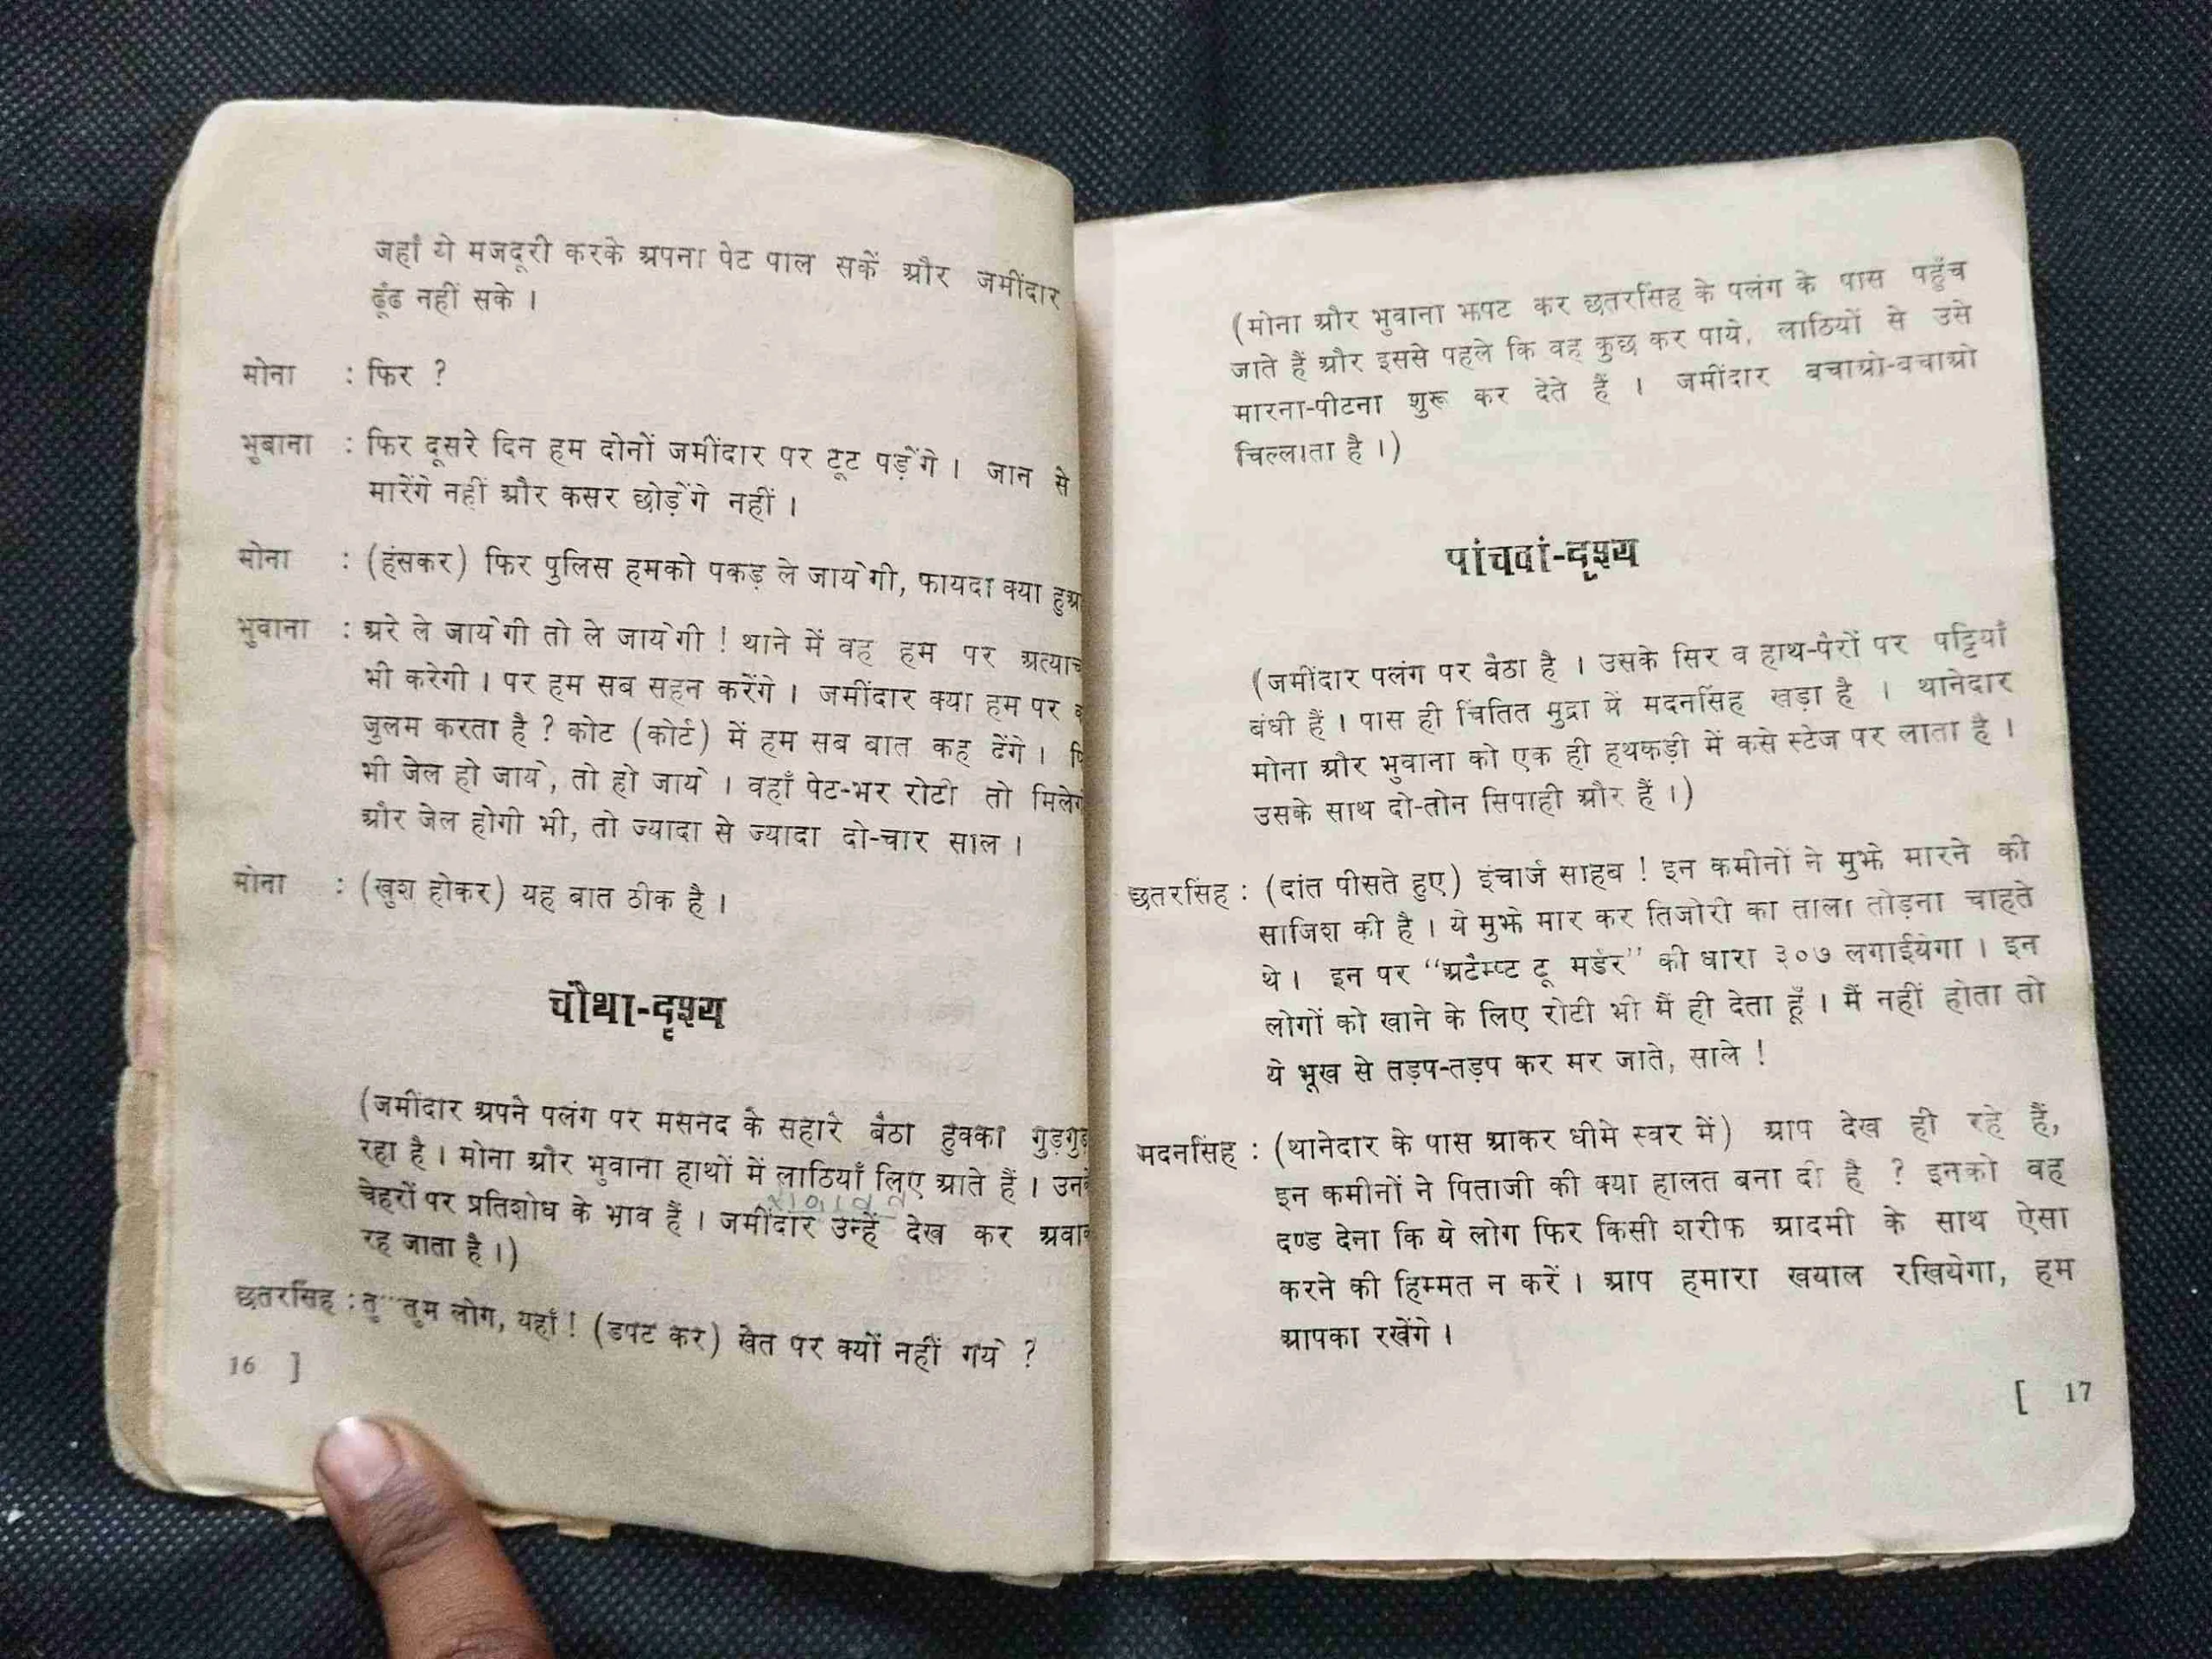 जहाँ ये मजदूरी करके अपना पेट पाल सकें और जमींदार
ढूंढ नहीं सके ।
मोना : फिर ?
भुबाना : फिर दूसरे दिन हम दोनों जमींदार पर टूट पड़ेंगे । जान से
मारेंगे नहीं और कसर छोड़ेंगे नहीं ।
मोना : (हंसकर) फिर पुलिस हमको पकड़ ले जायेगी, फायदा क्या
भुवाना : अरे ले जायेगी तो ले जायेगी ! थाने में वह हम पर
भी करेगी । पर हम सब सहन करेंगे । जमींदार क्या हम पर
जुलम करता है ? कोट (कोर्ट) में हम सब बात कह देंगे ।
भी जेल हो जाये, तो हो जाये । वहाँ पेट-भर रोटी तो
और जेल होगी भी, तो ज्यादा से ज्यादा दो-चार साल ।
मोना : (खुश होकर) यह बात ठीक है ।
चौथा-दृश्य
(जमींदार अपने पलंग पर मसनद के सहारे बैठा हुक्का
रहा है । मोना और भुवाना हाथों में लाठियाँ लिए आते हैं ।
चेहरों पर प्रतिशोध के भाव हैं । जमींदार उन्हें देख कर
रह जाता है ।)
छतरसिंह : तु...तुम लोग, यहाँ ! (डपट कर) खेत पर क्यों नहीं गये ?
16 ]
(मोना और भुवाना झपट कर छतरसिंह के पलंग के पास पहुँच
जाते हैं और इससे पहले कि वह कुछ कर पाये, लाठियों से उसे
मारना-पीटना शुरू कर देते हैं । जमींदार बचाओ-बचाओ
चिल्लाता है ।)
पांचवां-दृश्य
(जमींदार पलंग पर बैठा है । उसके सिर व हाथ-पैरों पर पट्टियाँ
बंधी हैं । पास ही चिंतित मुद्रा में मदनसिंह खड़ा है । थानेदार
मोना और भुवाना को एक ही हथकड़ी में कसे स्टेज पर लाता है ।
उसके साथ दो-तीन सिपाही और हैं ।)
छतरसिंह : (दांत पीसते हुए) इंचार्ज साहब ! इन कमीनों ने मुझे मारने की
साजिश की है । ये मुझे मार कर तिजोरी का ताला तोड़ना चाहते
थे । इन पर “अटैम्प्ट टू मर्डर” की धारा ३०७ लगाईयेगा । इन
लोगों को खाने के लिए रोटी भी मैं ही देता हूँ । मैं नहीं होता तो
ये भूख से तड़प-तड़प कर मर जाते, साले !
मदनसिंह : (थानेदार के पास आकर धीमे स्वर में) आप देख ही रहे हैं,
इन कमीनों ने पिताजी की क्या हालत बना दी है ? इनको वह
दण्ड देना कि ये लोग फिर किसी शरीफ आदमी के साथ ऐसा
करने की हिम्मत न करें । आप हमारा खयाल रखियेगा, हम
आपका रखेंगे ।
[ 17